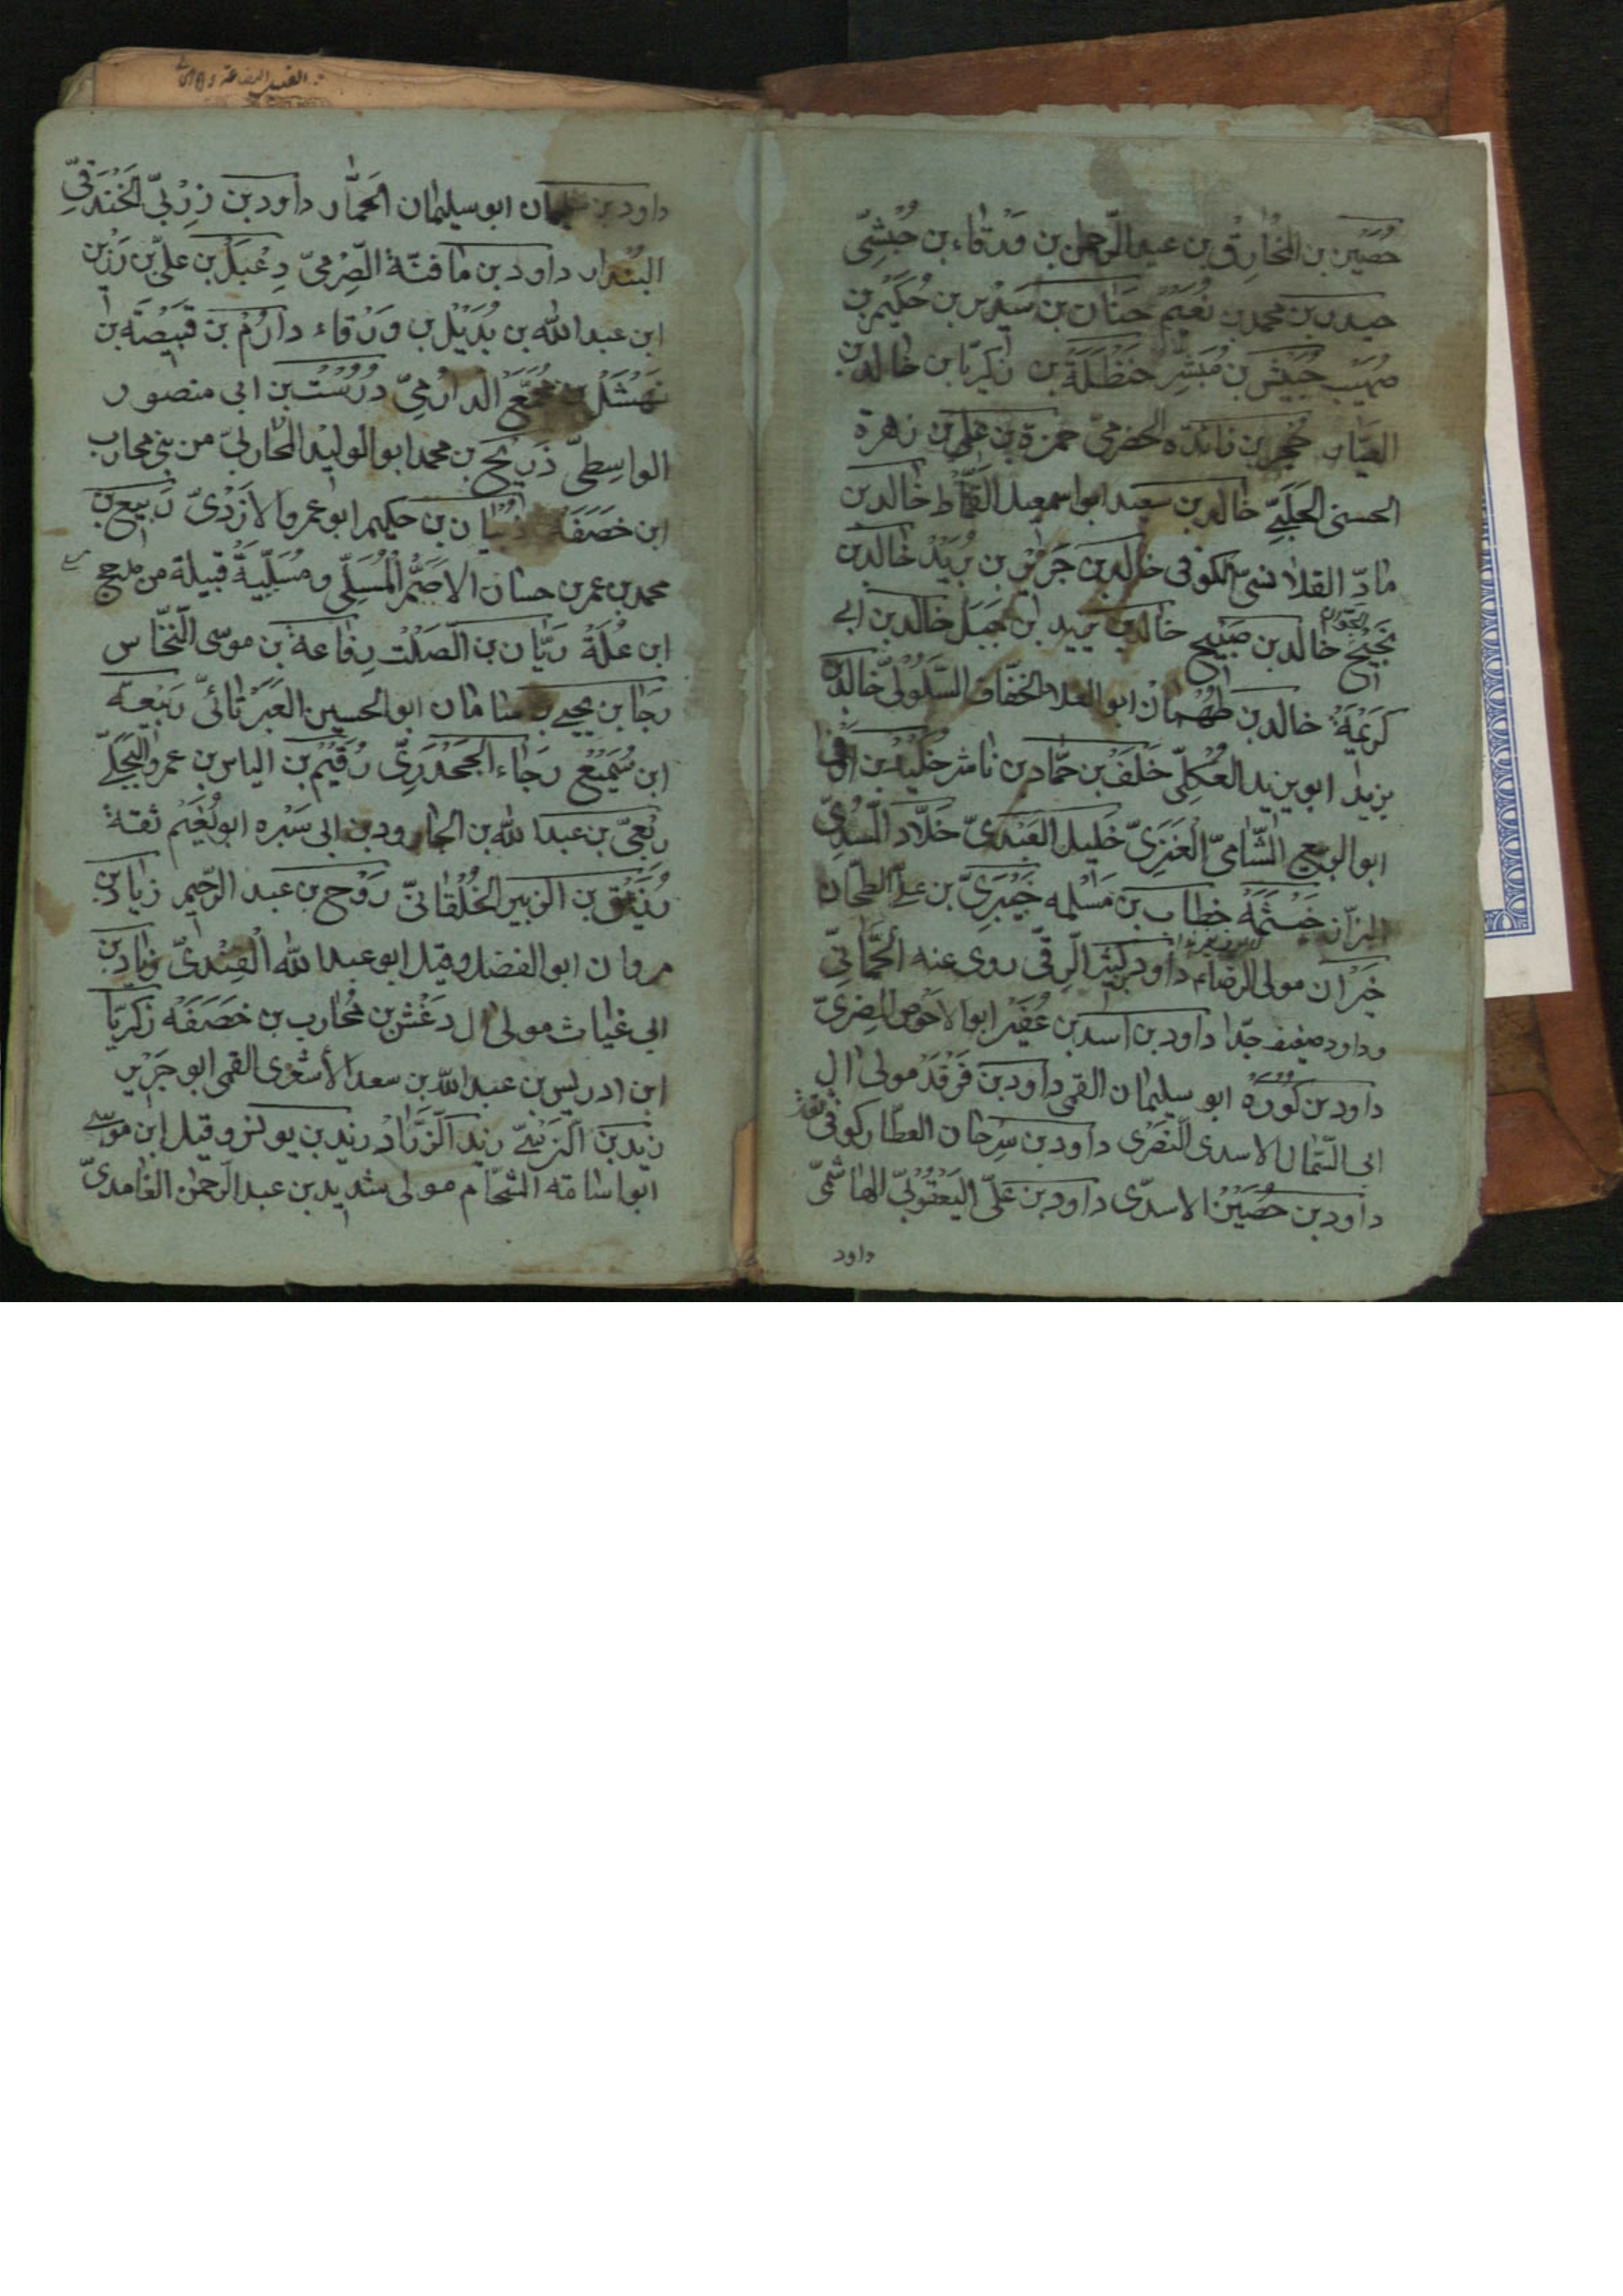 حُصَيْن بن المُخٰارِق بن عبد الرّحمٰن بن وَرْقٰاء بن حُبْشِيّ
حيدر بن محمد بن نُعَيْم حَنٰان بن سَدِير بن حُكَيْم بن
صُهَيْب حُبَيْش بن مُبَشِّر حَنْظَلَة بن زكريّا بن خالد بن
العيّار حُجْر بن زائدة الحضرميّ حمزة بن علي بن زهرة
الحسنى الحَلَبيّ خالد بن سعيد ابو اسمعيل القَمّاط خالد بن
مادّ القلانسىّ الكوفى خالد بن جَرير بن يزيد خالد بن
نَجِيْح الجَوّان خالد بن صَبِيْح خالد بن يزيد بن جَبَل خالد بن ابى
كَرِيْمَة خالد بن طَهْمٰان ابو العلاء الخفّاف السَّلُوليّ خالد بن
يزيد ابو يزيد العُكْليّ خَلَف بن حَمّاد بن ناشر خُلَيْد بن اَوْفىٰ
ابو الربيع الشّاميّ العَنَزيّ خَليل العَبْديّ خَلّاد السِّنْديّ
البزّاز خَيْثَمَة خطاب بن مَسْلمه خَيْبَريّ بن عليّ الطحّان
خَيْرٰان مولى الرضاء داود بن كثير الرقّى روى عنه الحِمّانيّ
وداود ضعيف جدّا داود بن اسد بن عُفَيْر ابو الاحوص المصرىّ
داود بن كُوْرَة ابو سليمان القمى داود بن فَرْقَد مولى ال
ابى السَّمّال الاسدى النَّصْرى داود بن سِرحان العطّار كوفى ثقة
داود بن حُصَيْن الاسدّى داود بن عليّ اليَعْقُوبيّ الهاشميّ
داود
داود بن سليمان ابو سليمان الحَمّار داود بن زِرْبيّ الخَنْدَقيّ
البُنْدار داود بن مافنّة الصّرْميّ دِعْبَل بن عليّ بن رَزِيْن
ابن عبد الله بن بُدَيْل بن وَرْقاء دارُمْ بن قَبيْصَة بن
نَهْشَل بن مُجَمَّع الدارميّ دُرُسْت بن ابى منصور
الواسِطىّ ذَرِيْح بن محمد ابو الوليد المُحاربيّ من بنى محارب
ابن خَصَفَة ذُبْيان بن حكيم ابو عمرو الازْدىّ رَبيع بن
محمد بن عمر بن حسان الاصَمّ المُسْلىّ ومُسْلِيَة قبيلة من مذحج
ابن عُلَة رَيّان بن الصّلْت رِفاعة بن موسى النّخّاس
رَجا بن يحيى بن سامان ابو الحسين العَبَرْتائىّ رَبيْعة
ابن سُمَيْع رَجاء الجَحْدَرِىّ رُقَيْم بن الياس بن عمرو البَجَليّ
رِبْعيّ بن عبد الله بن الجارود بن ابى سَبْره ابو نُعَيْم ثقة
رُزَيْق بن الزبير الخُلْقانىّ رَوْح بن عبد الرّحيم زياد بن
مروان ابو الفضل وقيل ابو عبد الله القَنْدىّ زياد بن
ابى غياث مولى ال دَغْش بن مُحارب بن خَصَفَه زكريّا
ابن ادريس بن عبد الله بن سعد الأشعرى القمى ابو جَرير
زيد النَّرْسيّ زيد الزَّرّاد زيد بن يونس وقيل ابن موسى
ابو اسامة الشّحّام مولى شديد بن عبد الرحمٰن الغامدىّ